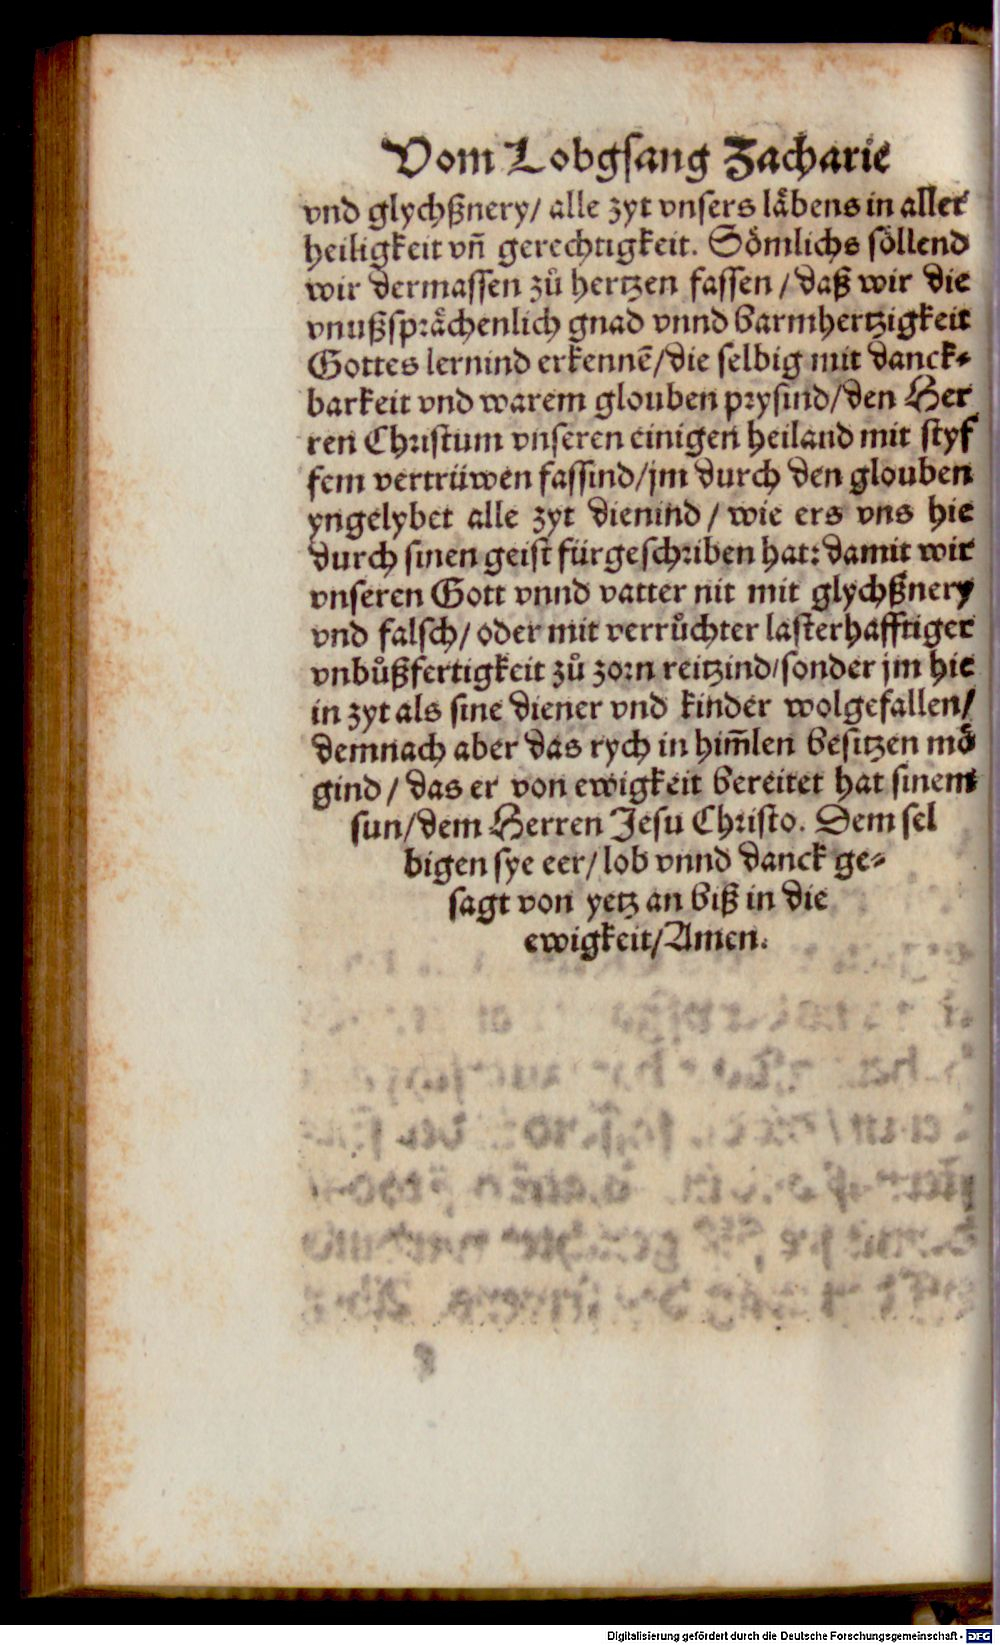 Vom Lobgsang Zacharie
vnd glychßnery/ alle zyt vnsers låbens in aller
heiligkeit vñ gerechtigkeit. Sömlichs söllend
wir dermassen zů hertzen fassen / daß wir die
vnußsprächenlich gnad vnnd barmhertzigkeit
Gottes lernind erkennē/die selbig mit danck-
barkeit vnd warem glouben prysind/den Her
ren Christum vnseren einigen heiland mit styf
fem vertrüwen fassind/jm durch den glouben
yngelybet alle zyt dienind / wie ers vns hie
durch sinen geist fürgeschriben hat: damit wir
vnseren Gott vnnd vatter nit mit glychßnery
vnd falsch/ oder mit verrůchter lasterhafftiger
vnbůßfertigkeit zů zorn reitzind/sonder jm hie
in zyt als sine diener vnd kinder wolgefallen/
demnach aber das rych in him̃len besitzen mö
gind / das er von ewigkeit bereitet hat sinem
sun/dem Herren Jesu Christo. Dem sel
bigen sye eer/ lob vnnd danck ge-
sagt von yetz an biß in die
ewigkeit/Amen.
Digitalisierung gefördert durch die Deutsche Forschungsgemeinschaft - DFG